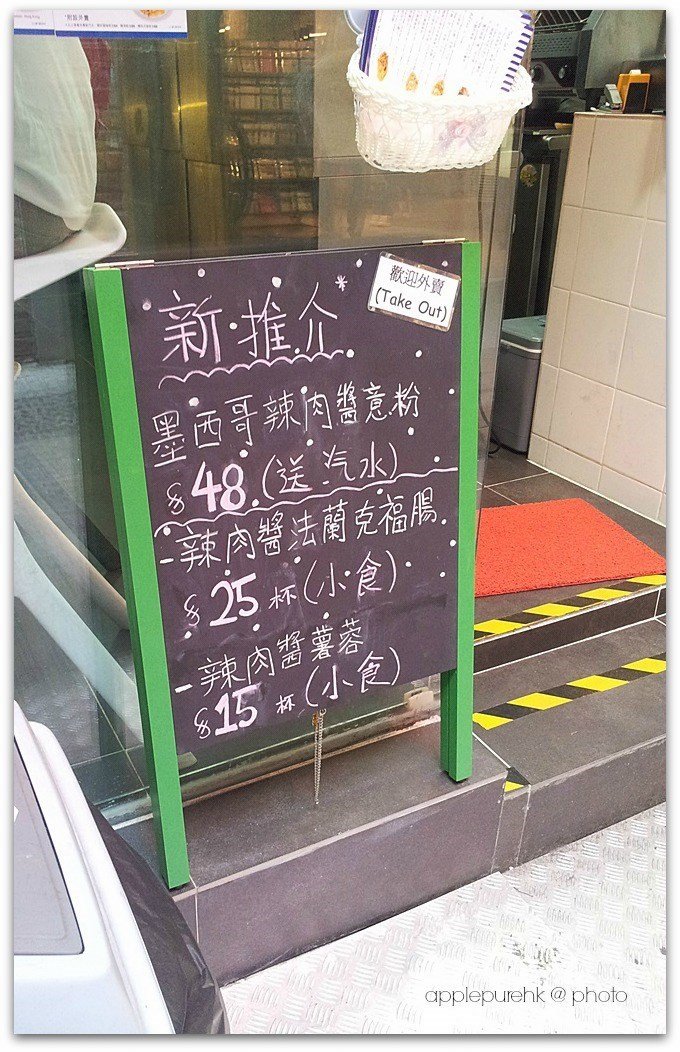 *附設外賣
歡迎外賣
(Take Out)
新推介
墨西哥辣肉醬意粉
$48.(送汽水)
-辣肉醬法蘭克福腸
$25杯(小食)
-辣肉醬薯蓉
$15杯(小食)
applepurehk @ photo